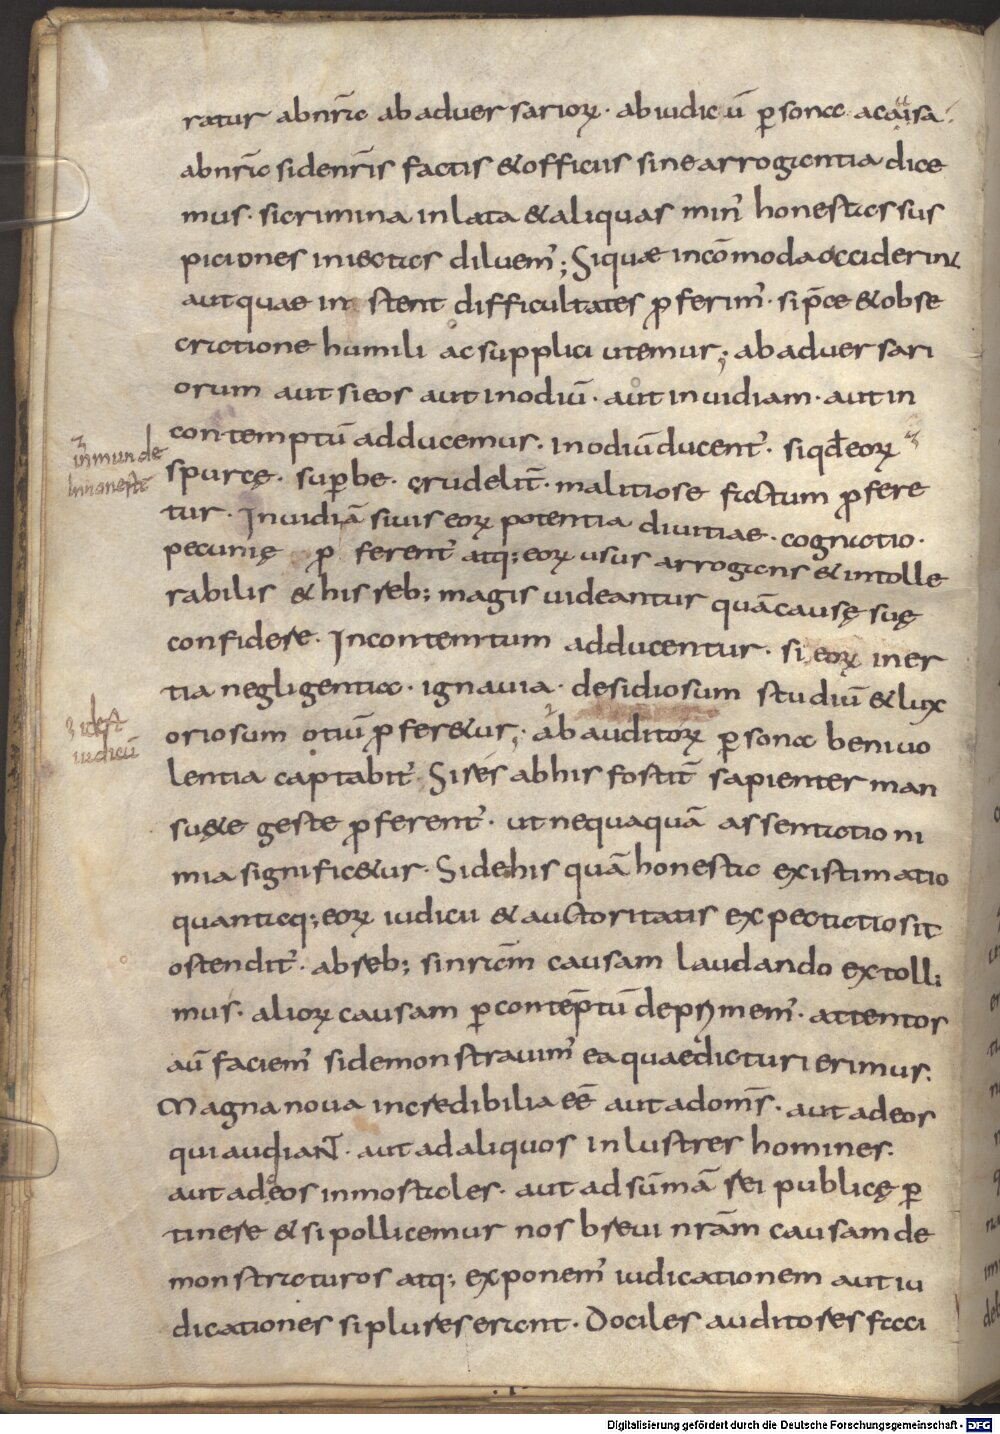 ratur abnr̄a ab aduersarioꝝ · ab iudicū ꝑsona · a causa ·
abnr̄a si denr̄is factis & officiis sine arrogantia dice
mus · si crimina inlata & aliquas min' honestas sus
piciones iniectas diluem'; Si quae incōmoda acciderint
aut quae instent difficultates ꝓferim' · si p̄ce & obse
cratione humili ac supplici utemur; ab aduersari
orum aut si eos aut in odiū · aut in uidiam · aut in
contemptū adducemus · in odiū ducent' · siqđ eoꝝ
inmunde
inhoneste
spurcę · suꝑbe · crudelit̄ · malitiose factum ꝓfere
tur · Inuidiā si uis eoꝝ potentia diuitiae · cognatio ·
pecunię ꝓferent' atq; eoꝝ usus arrogans & intolle
rabilis & his seb; magis uideantur quā causę suę
confidere · In contemtum adducentur · si eoꝝ iner
tia negligentia · ignauia · desidiosum studiū & lux
oriosum otiū ꝓfer&ur; ab auditoꝝ ꝑsona beniuo
idest
iudicū
lentia captabit' · Si res ab his fortit̄ sapienter man
su&e geste ꝓferent' · ut nequaquā assentatio ni
mia signific&ur · Si de his quā honesta existimatio
quantaq; eoꝝ iudicii & auctoritatis expectatio sit
ostendit' · ab reb; si nr̄am causam laudando extolli
mus · alioꝝ causam ꝑ contēptū deprimem' · attentos
aū faciem' si demonstrauim' ea quae dicturi erimus ·
Magna noua incredibilia eē aut ad om̄s · aut ad eos
qui audiant · aut ad aliquos inlustres homines ·
aut ad deos inmortales · aut ad sūmā rei publicę ꝑ
tinere & si pollicemur nos breui nrām causam de
monstraturos atq; exponem' iudicationem aut iu
dicationes si plures erant · Dociles auditores faci
Digitalisierung gefördert durch die Deutsche Forschungsgemeinschaft - DFG